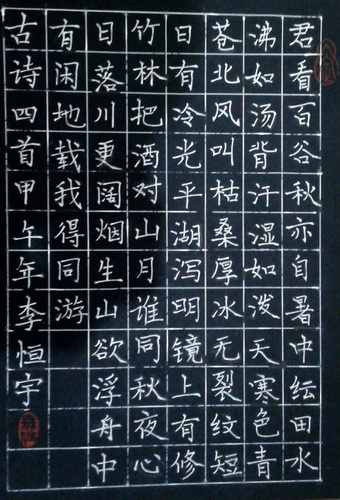 君看百谷秋亦自暑中纭田水
沸如汤背汗湿如泼天寒色青
苍北风叫枯桑厚冰无裂纹短
日有冷光平湖泻明镜上有修
竹林把酒对山月谁同秋夜心
日落川更阔烟生山欲浮舟中
有闲地载我得同游
古诗四首甲午年李恒宇